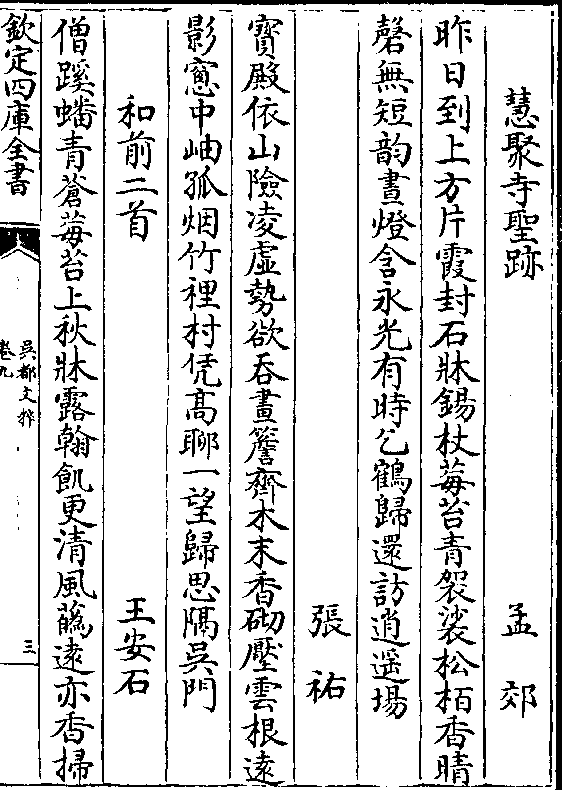 慧聚寺聖跡 孟郊
昨日到上方片霞封石牀錫杖莓苔青袈裟松栢香晴
磬無短韵晝燈含永光有時乞鶴歸還訪逍遥場
張祐
寳殿依山險凌虚勢欲吞畫簷齊木末香砌壓雲根逺
影窻中岫孤烟竹裡村凭髙聊一望歸思隔吳門
和前二首 王安石
僧蹊蟠青蒼莓苔上秋牀露翰飢更清風蘤逺亦香掃
欽定四庫全書
吳都文粹
卷九
三